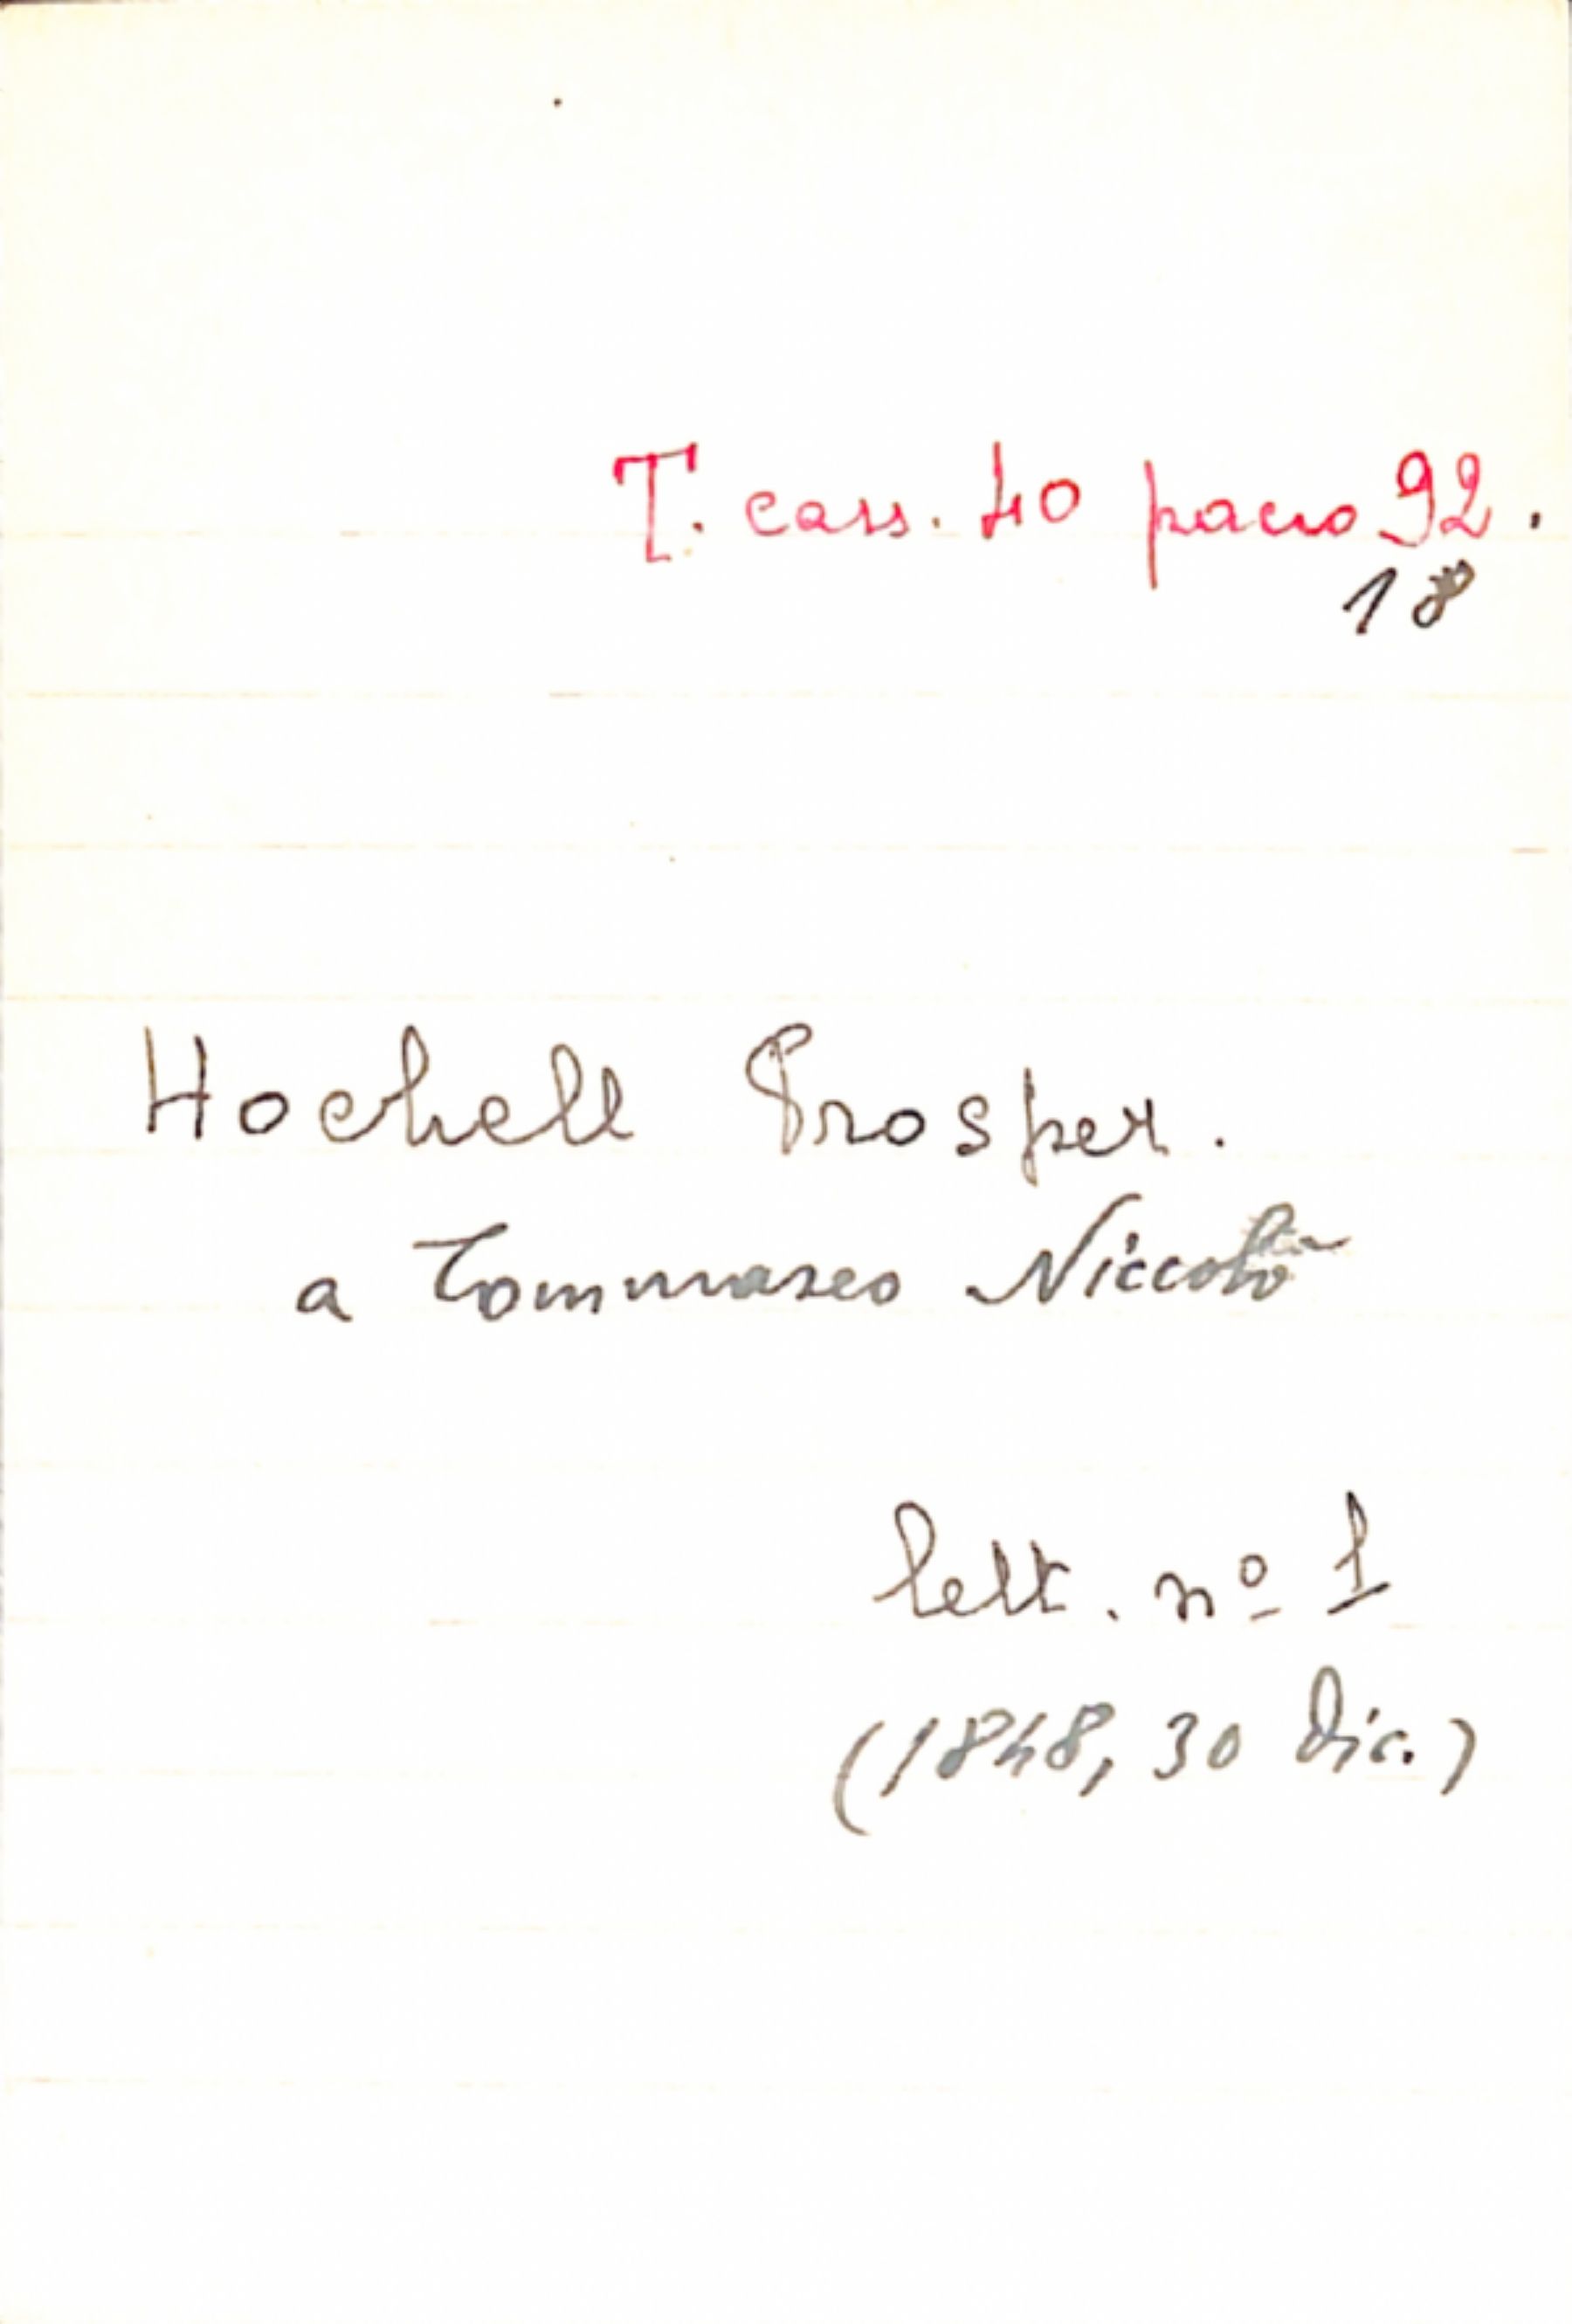 T. cass. 40 pacco 92.
18
Hochell Prosper.
a Tommaseo Niccolò
lett. nº 1
(1848, 30 Dic.)